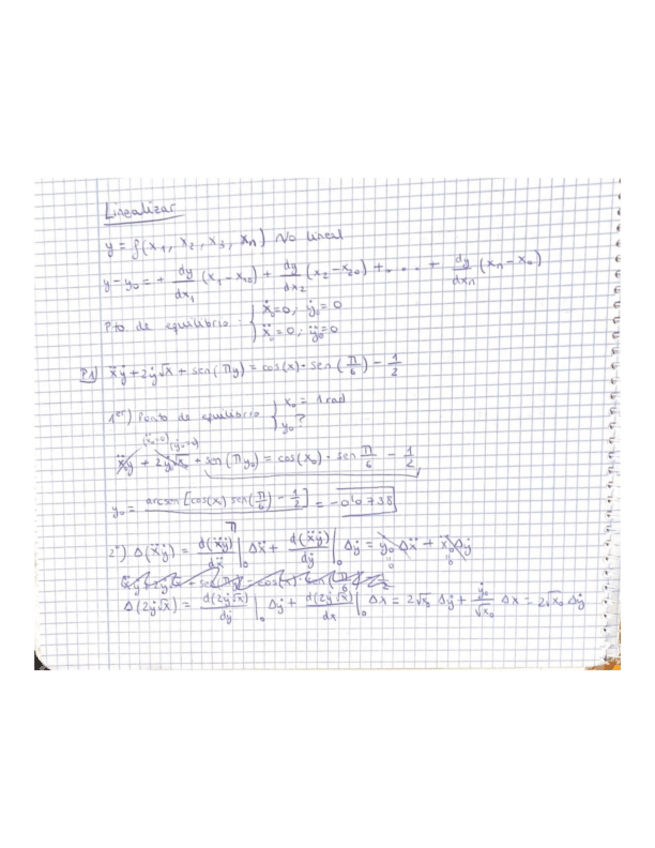 Linealizar
y = f(x₁, x₂, x₃, xₙ) No lineal
y-y₀ = + dy/dx₁ (x₁-x₁₀) + dy/dx₂ (x₂-x₂₀) + .... + dy/dxₙ (xₙ-x₀)
Pto de equilibrio: { ẋ₀=0; ẏ₀=0
ẍ₀=0; ÿ₀=0
P1) ẍẏ + 2ẏ√x + sen(πy) = cos(x)·sen(π/6) - 1/2
1er) Punto de equilibrio { x₀ = 1 rad
y₀?
(ẍ₀=0) (ẏ₀=0)
ẍ₀ẏ + 2ẏ√x₀ + sen(πy₀) = cos(x₀)·sen π/6 - 1/2
y₀ = arcsen[cos(x) sen(π/6) - 1/2] / π = -0'0738
2º) Δ(ẍẏ) = d(ẍẏ)/dẍ|₀ Δẍ + d(ẍẏ)/dẏ|₀ Δẏ = ẏ₀Δẍ + ẍ₀Δẏ
0 0
Δ(2ẏ√x) = d(2ẏ√x)/dẏ|₀ Δẏ + d(2ẏ√x)/dx|₀ Δx = 2√x₀ Δẏ + ẏ₀/√x₀ Δx = 2√x₀ Δẏ